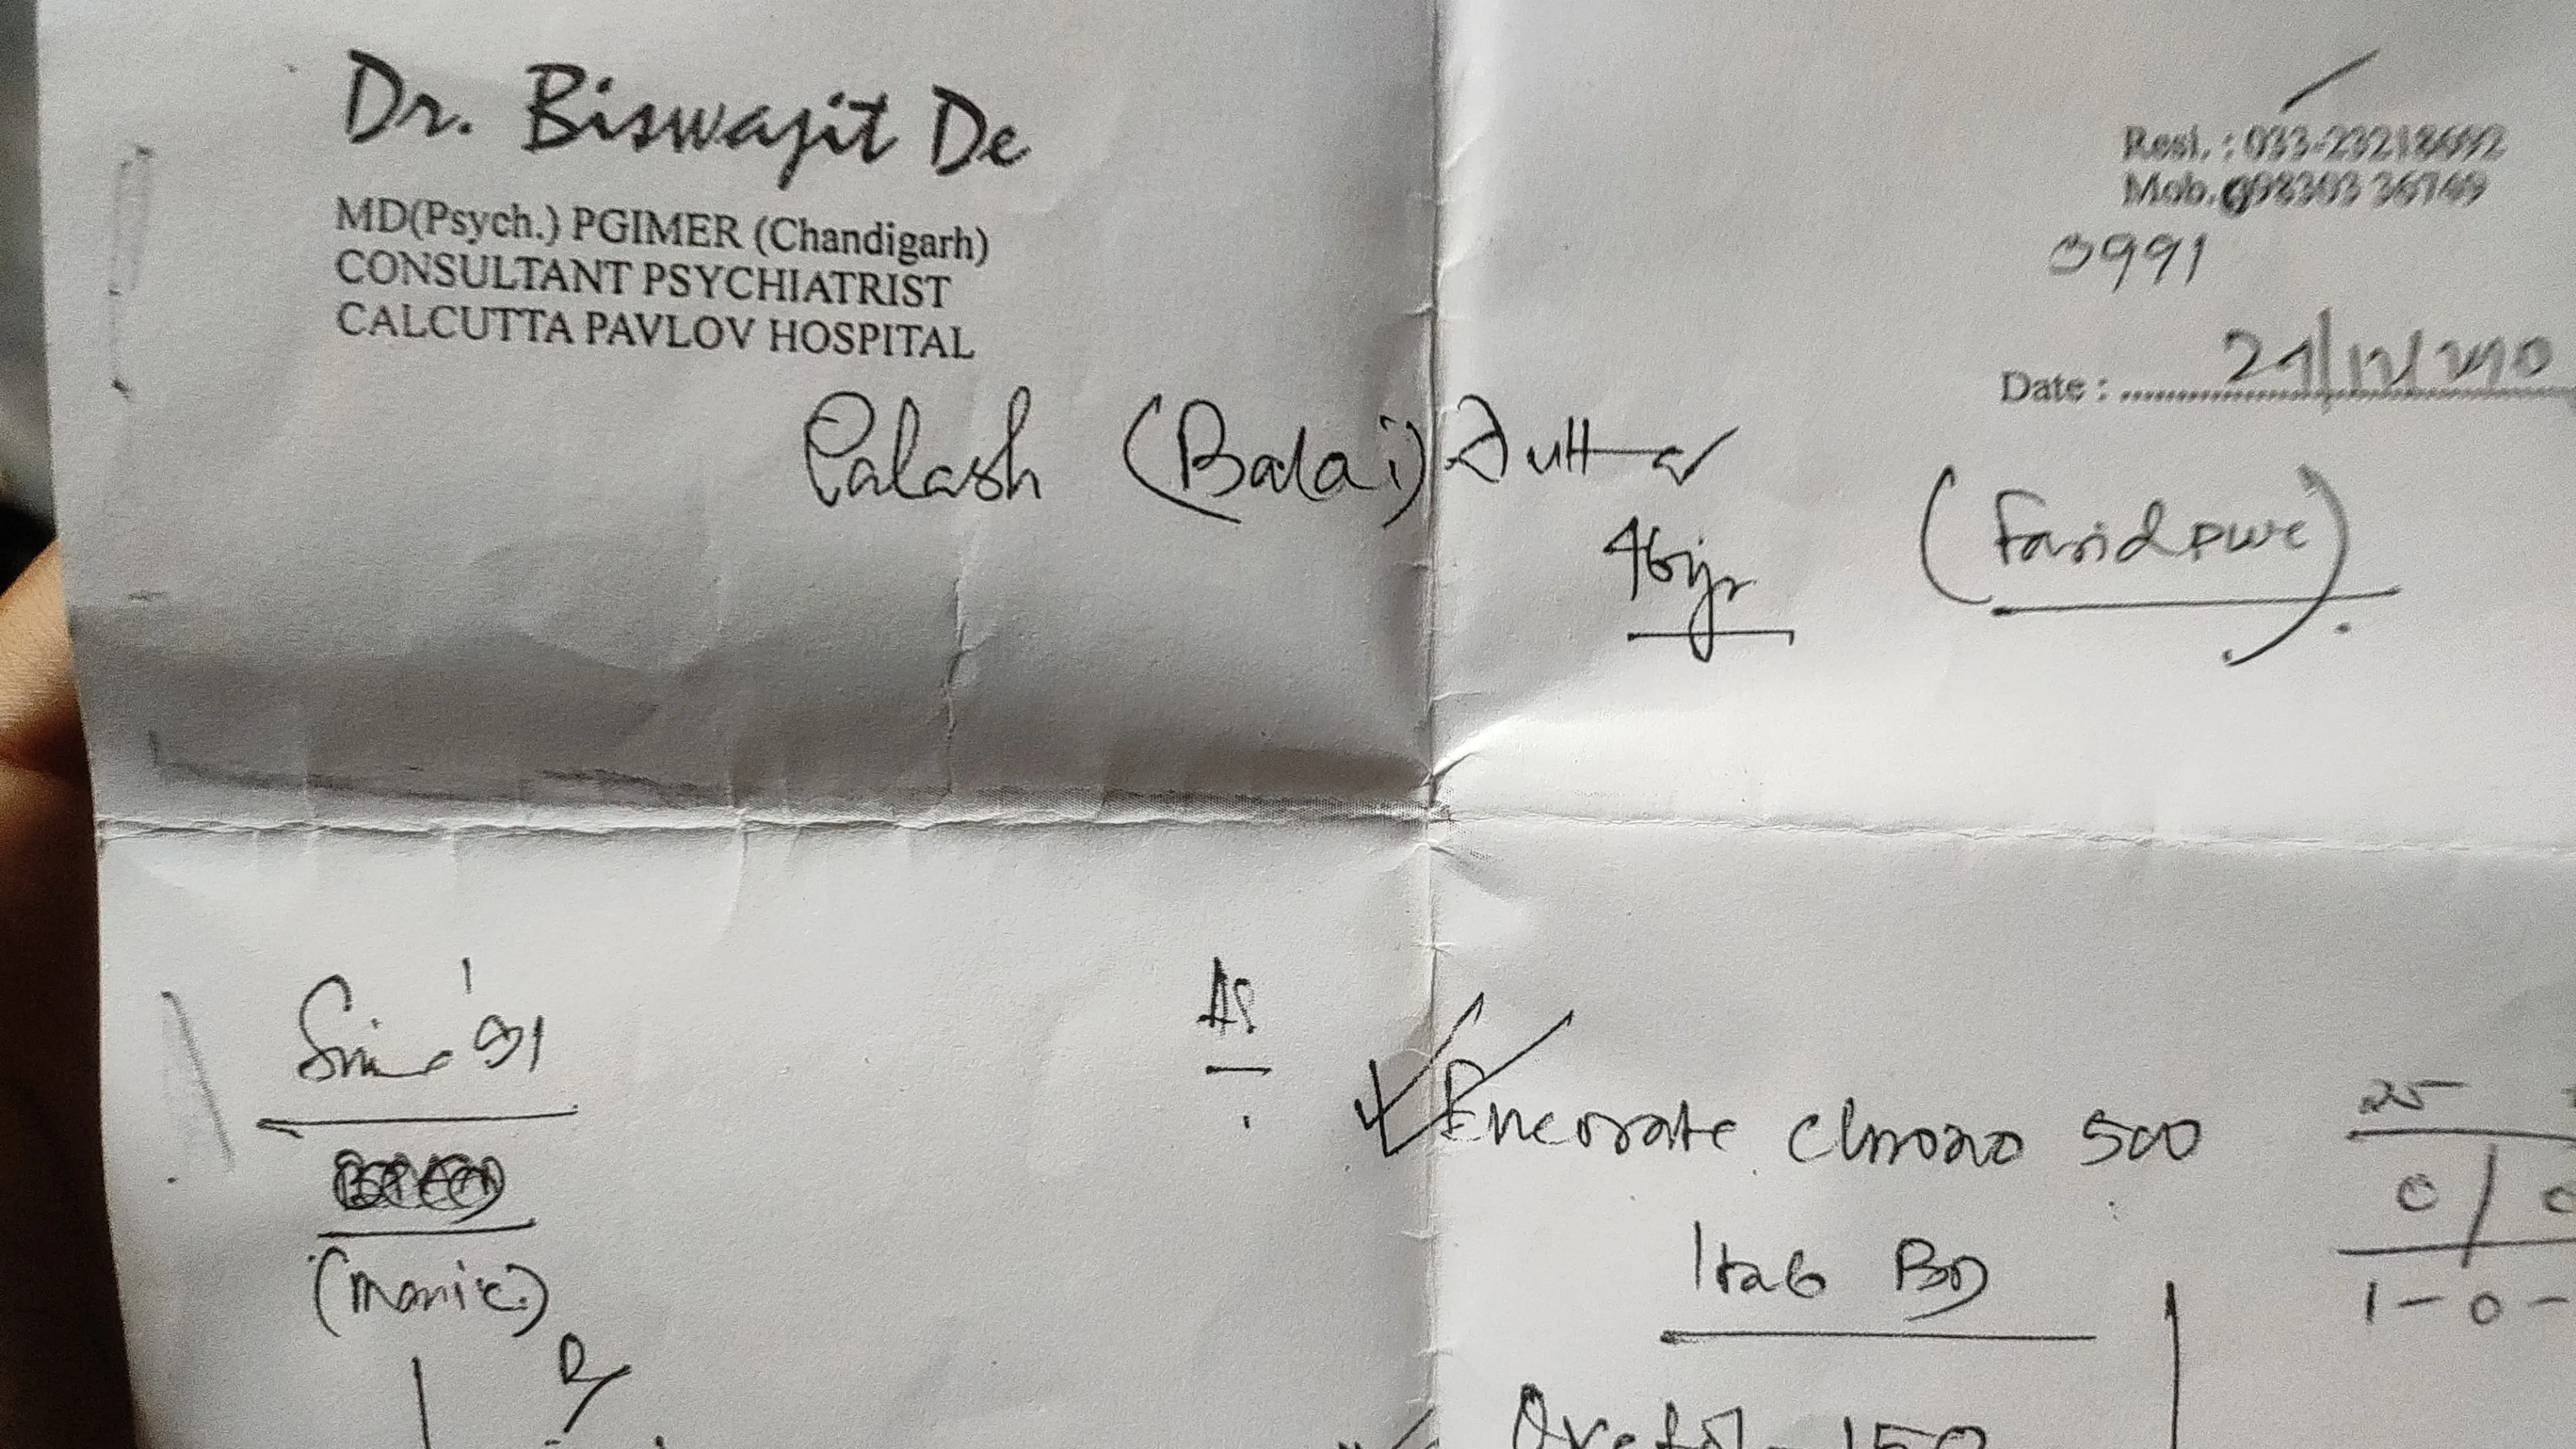 Dr. Biswajit De
MD(Psych.) PGIMER (Chandigarh)
CONSULTANT PSYCHIATRIST
CALCUTTA PAVLOV HOSPITAL
Resi. : 033-23218692
Mob.
0991
Date :
Palash (Balai) Dutta
46yr
(Faridpur)
Since '91
(manic)
Encorate Chrono 500
1 tab BD
25
0 / 0
1 - 0 -
150